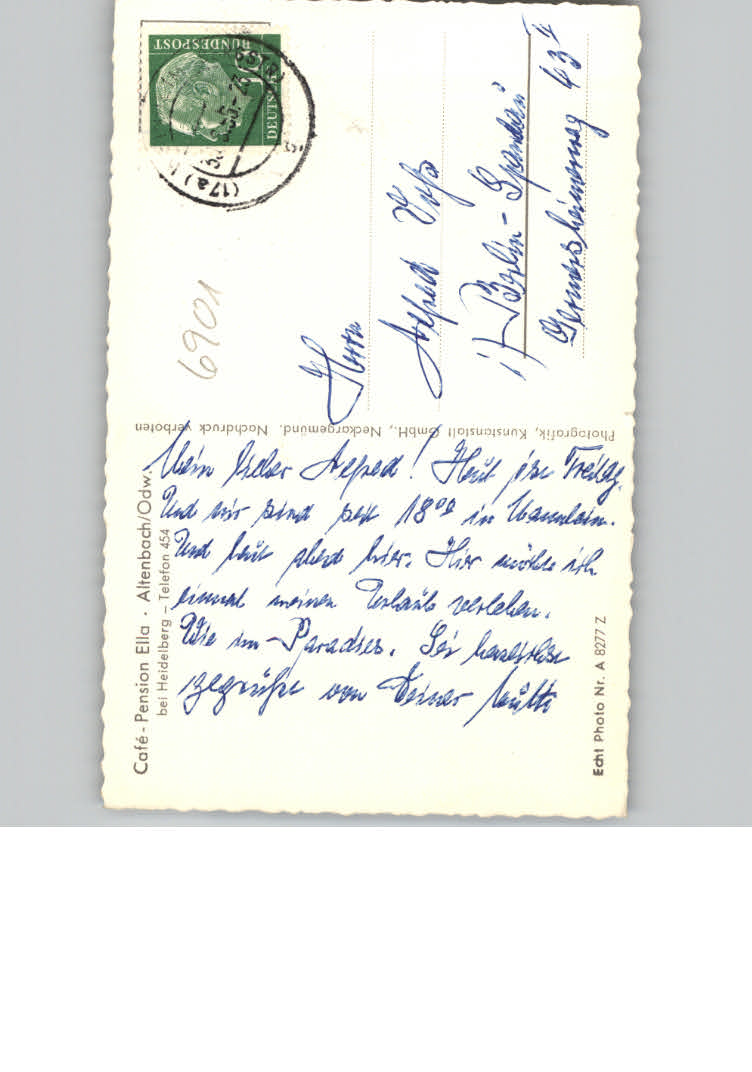 Café - Pension Ella · Altenbach/Odw.
bei Heidelberg – Telefon 454
Mein lieber Alfred! Heut ist Freitag.
Und wir sind seit 18°° in
Und heut abend hier. Hier möchte ich
einmal meinen Urlaub verleben.
Wie im Paradies. Sei herzlichst
gegrüßt von Deiner Mutti
Echt Photo Nr. A 8277 Z
Photografik, Kunstanstalt GmbH., Neckargemünd. Nachdruck verboten
DEUTSCHE
BUNDESPOST
10
(17a)
6901
Herrn
Alfred
1) Berlin - Spandau
Germersheimerweg 43